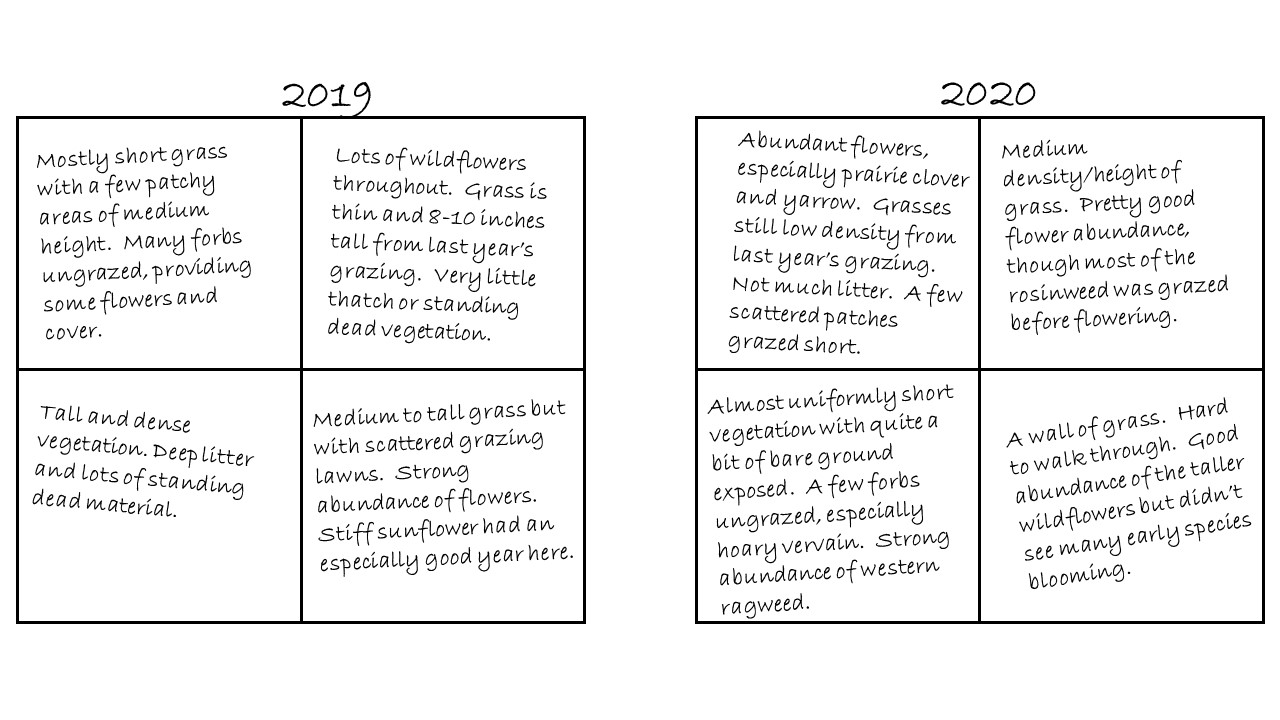 2019
Mostly short grass
with a few patchy
areas of medium
height. Many forbs
ungrazed, providing
some flowers and
cover.
Lots of wildflowers
throughout. Grass is
thin and 8-10 inches
tall from last year's
grazing. Very little
thatch or standing
dead vegetation.
Tall and dense
vegetation. Deep litter
and lots of standing
dead material.
Medium to tall grass but
with scattered grazing
lawns. Strong
abundance of flowers.
Stiff sunflower had an
especially good year here.
2020
Abundant flowers,
especially prairie clover
and yarrow. Grasses
still low density from
last year's grazing.
Not much litter. A few
scattered patches
grazed short.
Medium
density/height of
grass. Pretty good
flower abundance,
though most of the
rosinweed was grazed
before flowering.
Almost uniformly short
vegetation with quite a
bit of bare ground
exposed. A few forbs
ungrazed, especially
hoary vervain. Strong
abundance of western
ragweed.
A wall of grass. Hard
to walk through. Good
abundance of the taller
wildflowers but didn't
see many early species
blooming.